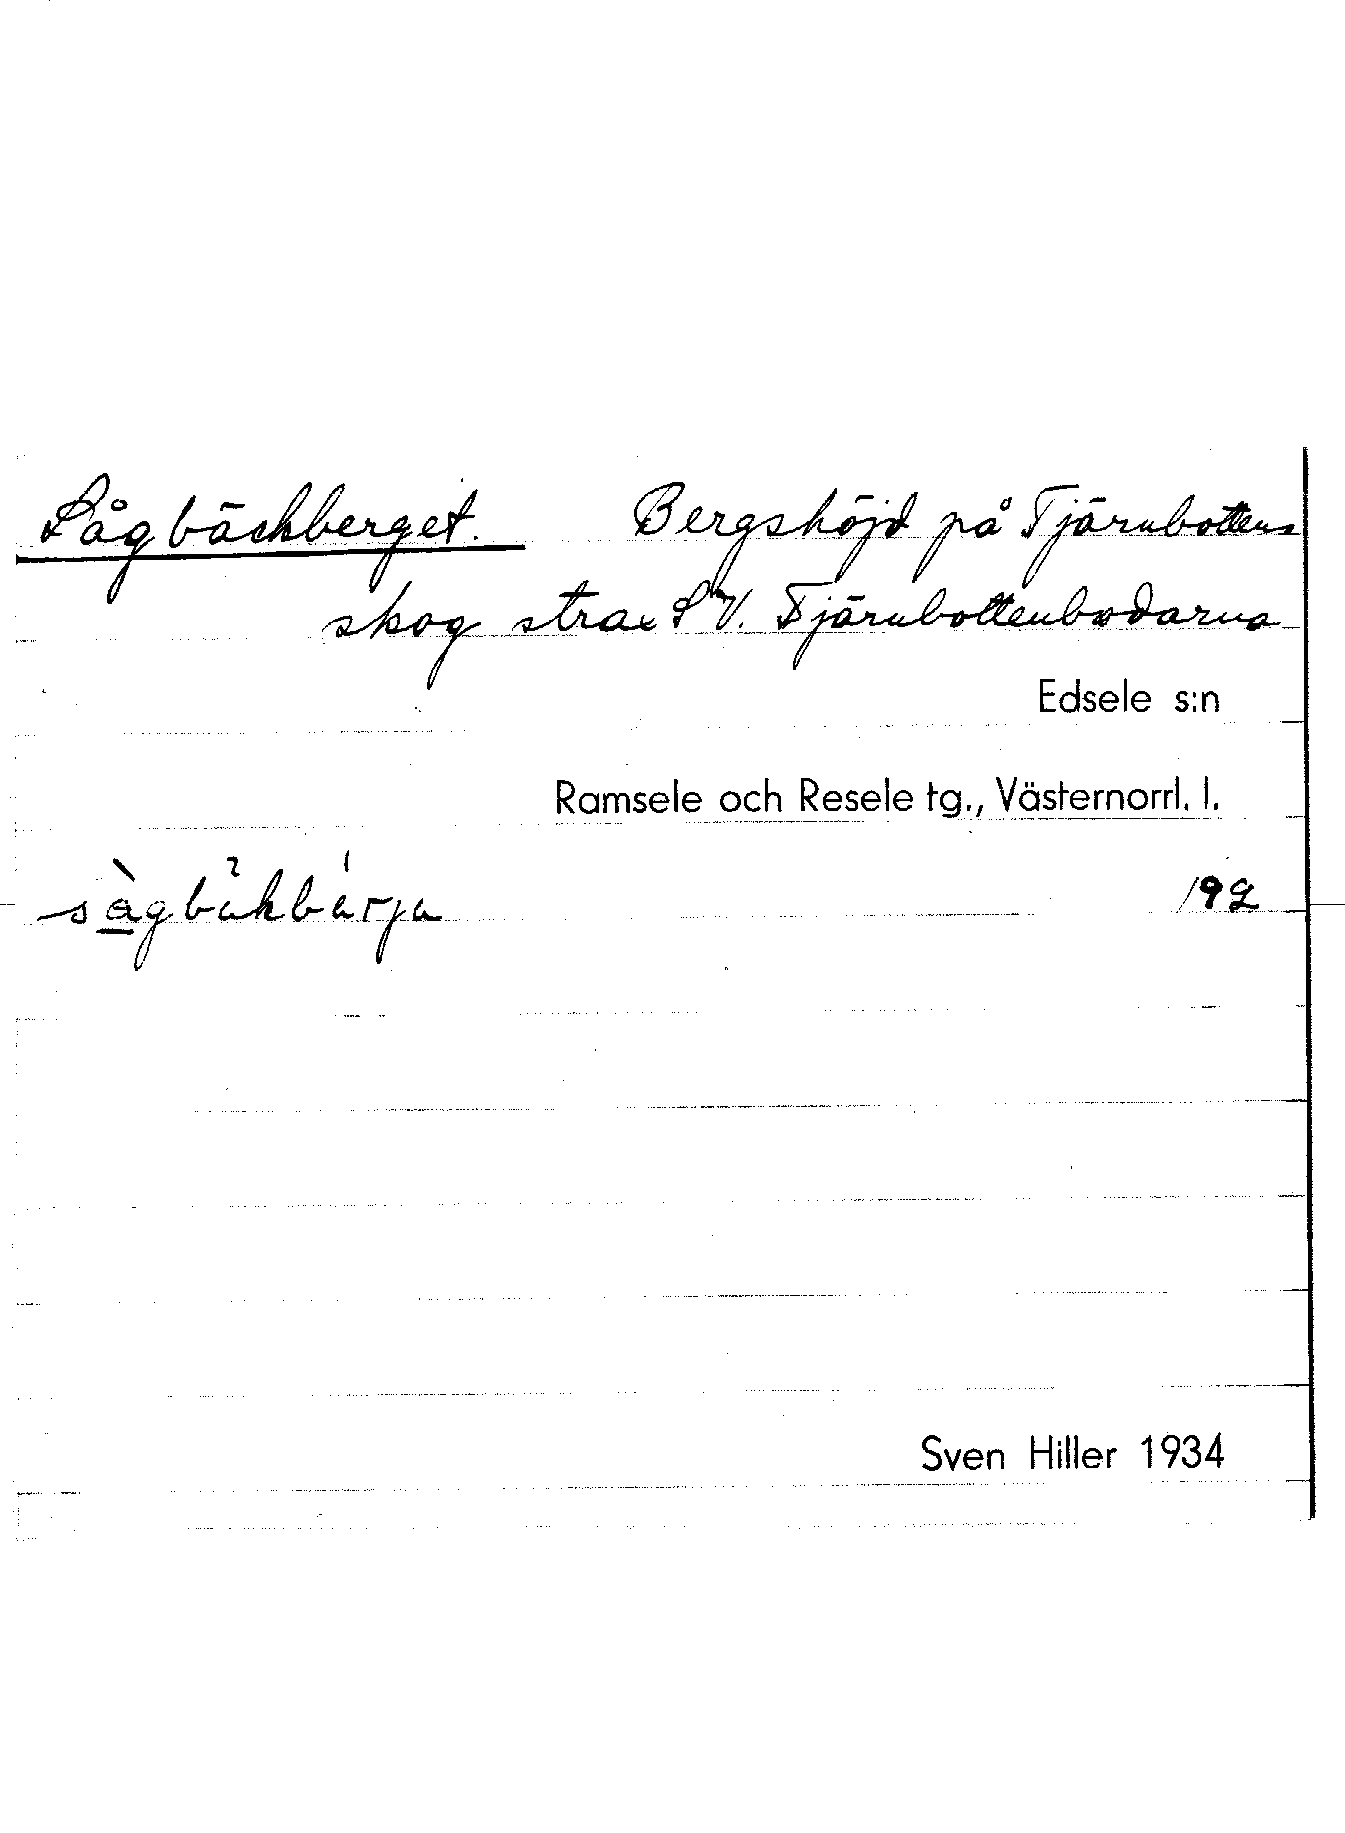 Sågbäckberget. Bergshöjd på Tjärnbottens
skog strax SV. Tjärnbottenbodarna
Edsele s:n
Ramsele och Resele tg., Västernorrl. l.
192
Sven Hiller 1934